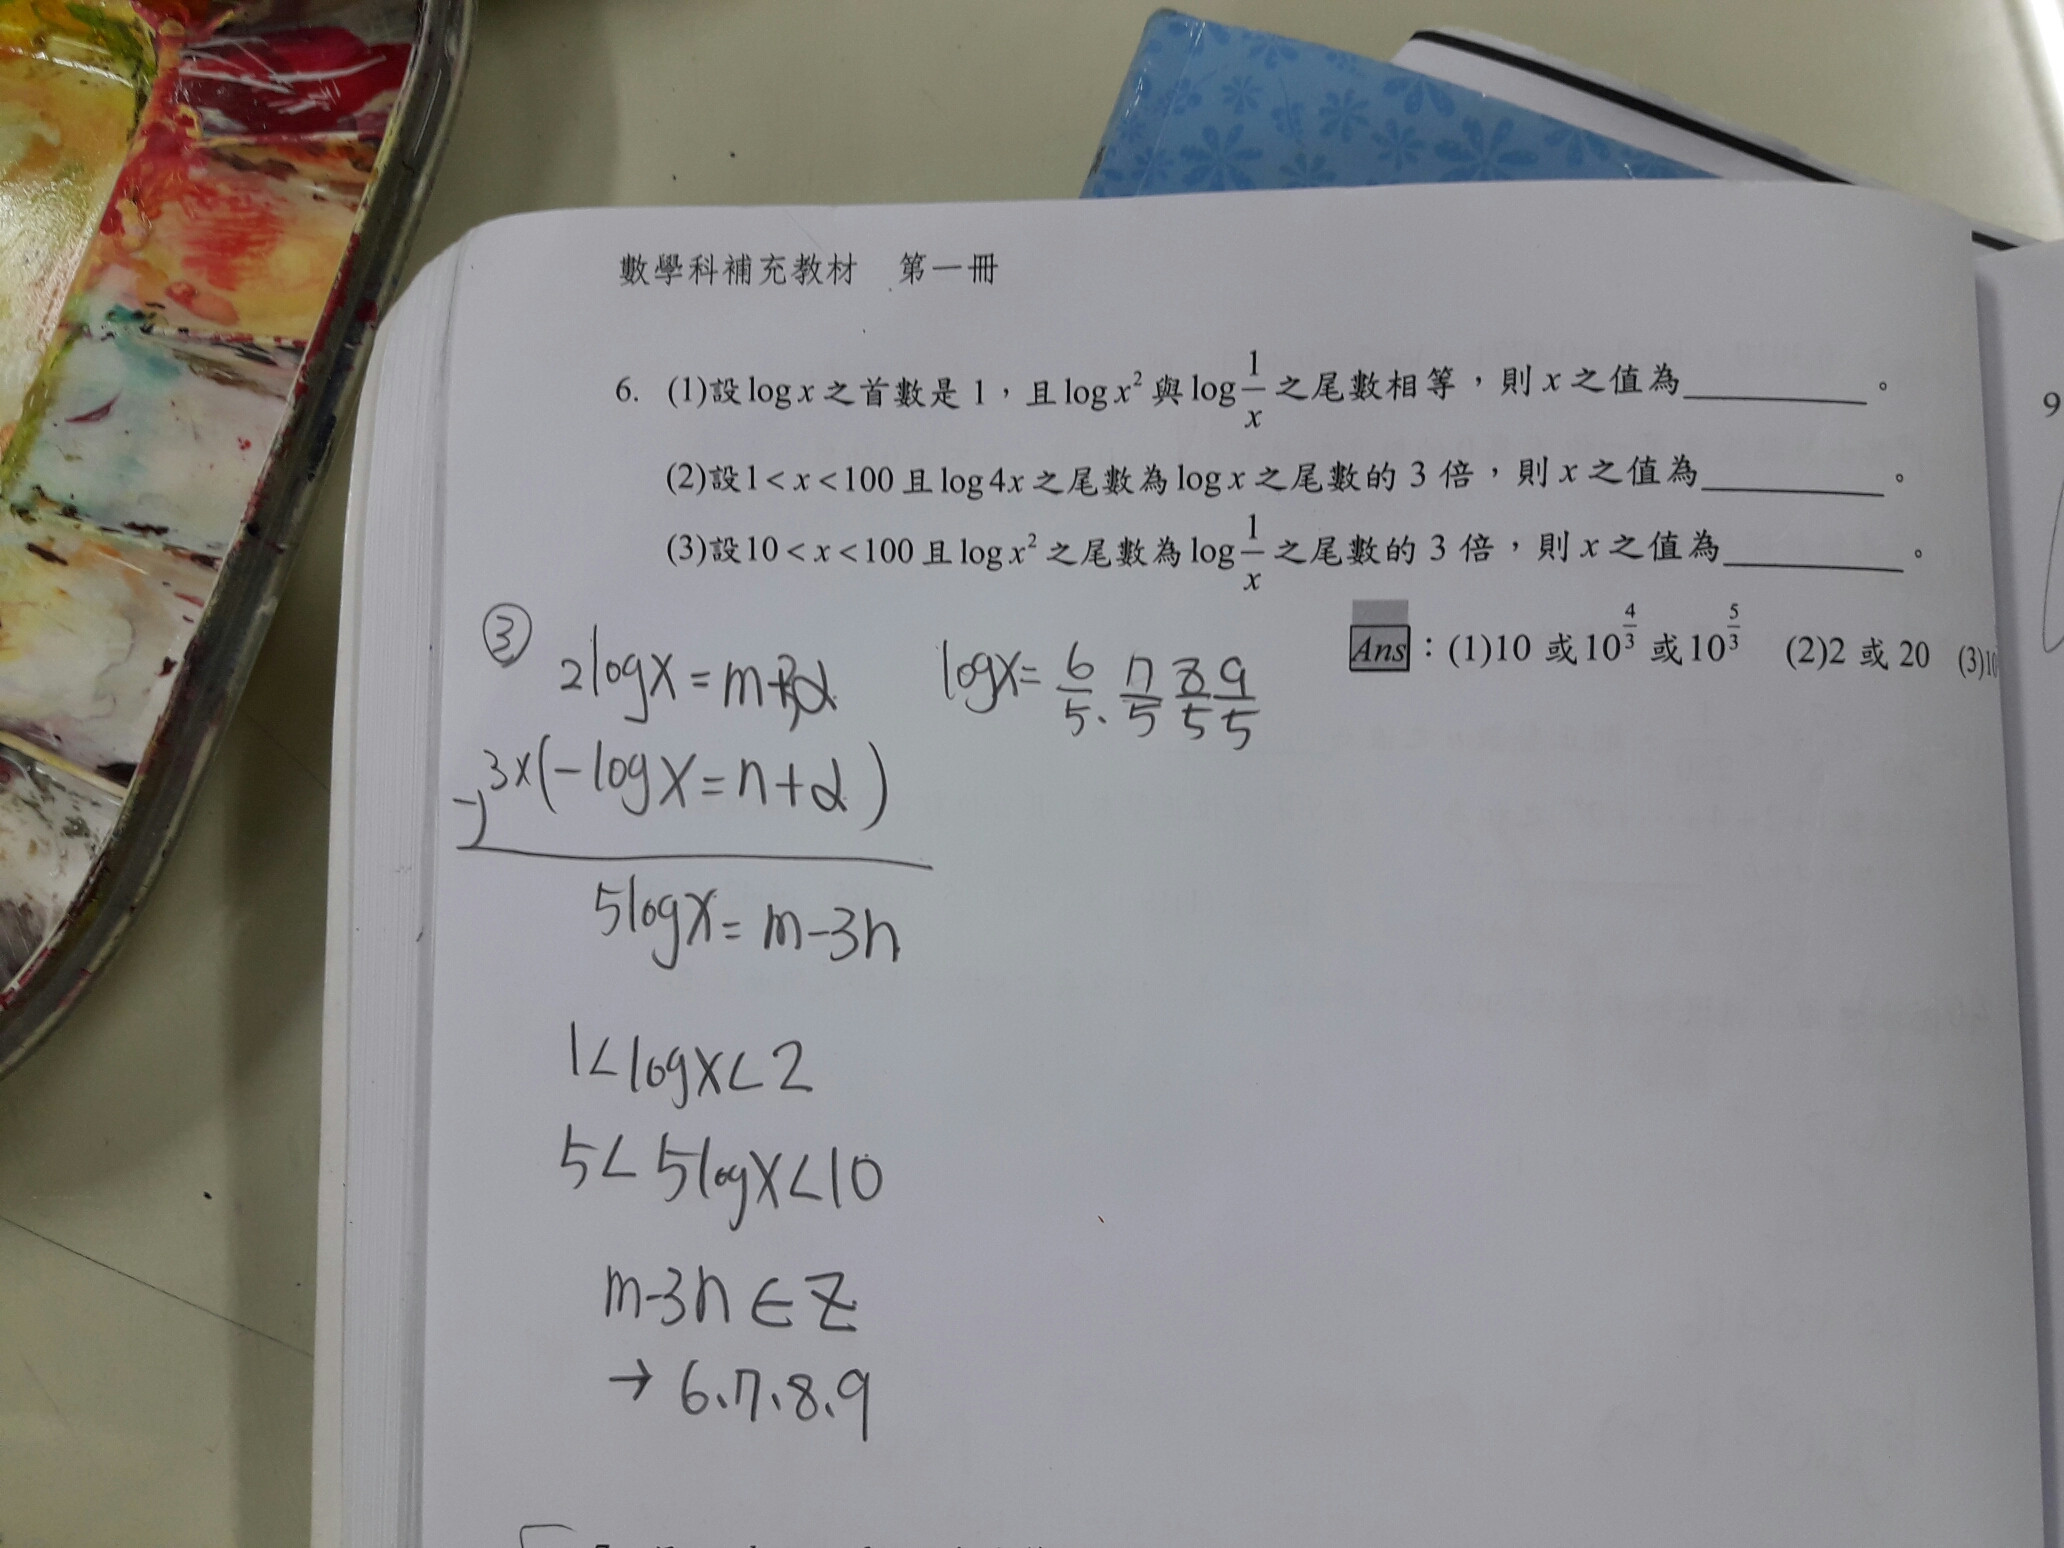 數學科補充教材 第一冊
6. (1)設 log x 之首數是 1，且 log x² 與 log 1/x 之尾數相等，則 x 之值為＿＿＿＿。
(2)設 1 < x < 100 且 log 4x 之尾數為 log x 之尾數的 3 倍，則 x 之值為＿＿＿＿。
(3)設 10 < x < 100 且 log x² 之尾數為 log 1/x 之尾數的 3 倍，則 x 之值為＿＿＿＿。
Ans：(1)10 或 10^(4/3) 或 10^(5/3) (2)2 或 20 (3)10
③ 2logx = m+3α
logx = 6/5、7/5 8/5 9/5
-) 3x(-logx = n+α)
5logx = m-3n
1<logx<2
5<5logx<10
m-3n ∈ Z
→ 6、7、8、9
9